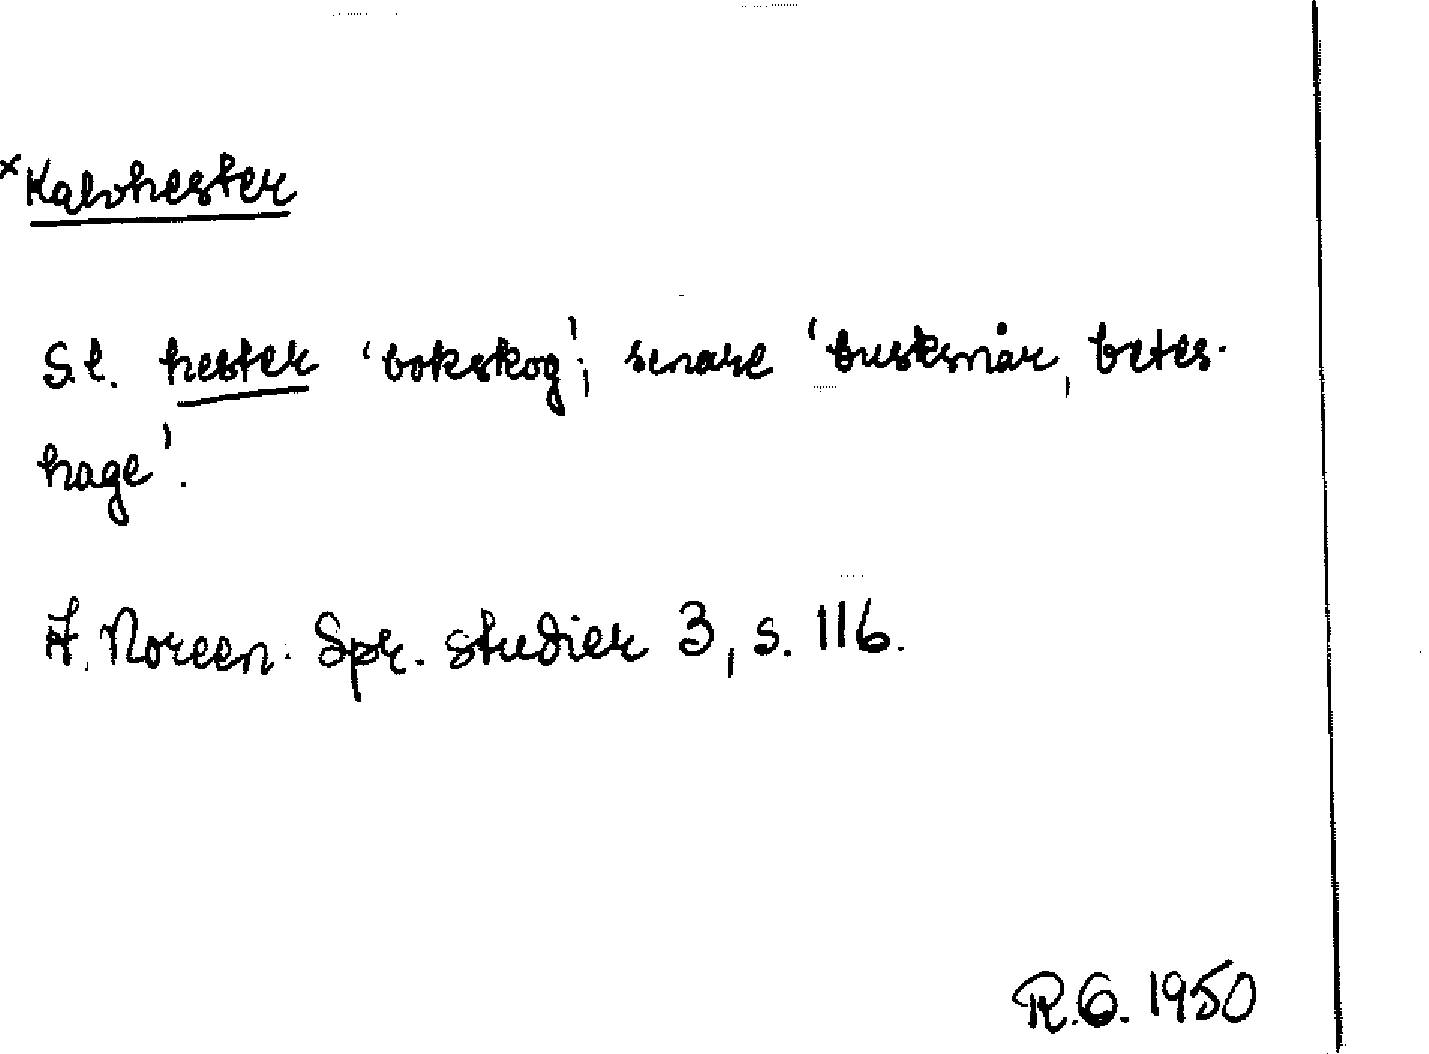 ×Kalvhester
S.l. hester 'bokskog'; senare 'busksnår, betes-
hage'.
A. Noreen. Spr. studier 3, s. 116.
R.G. 1950